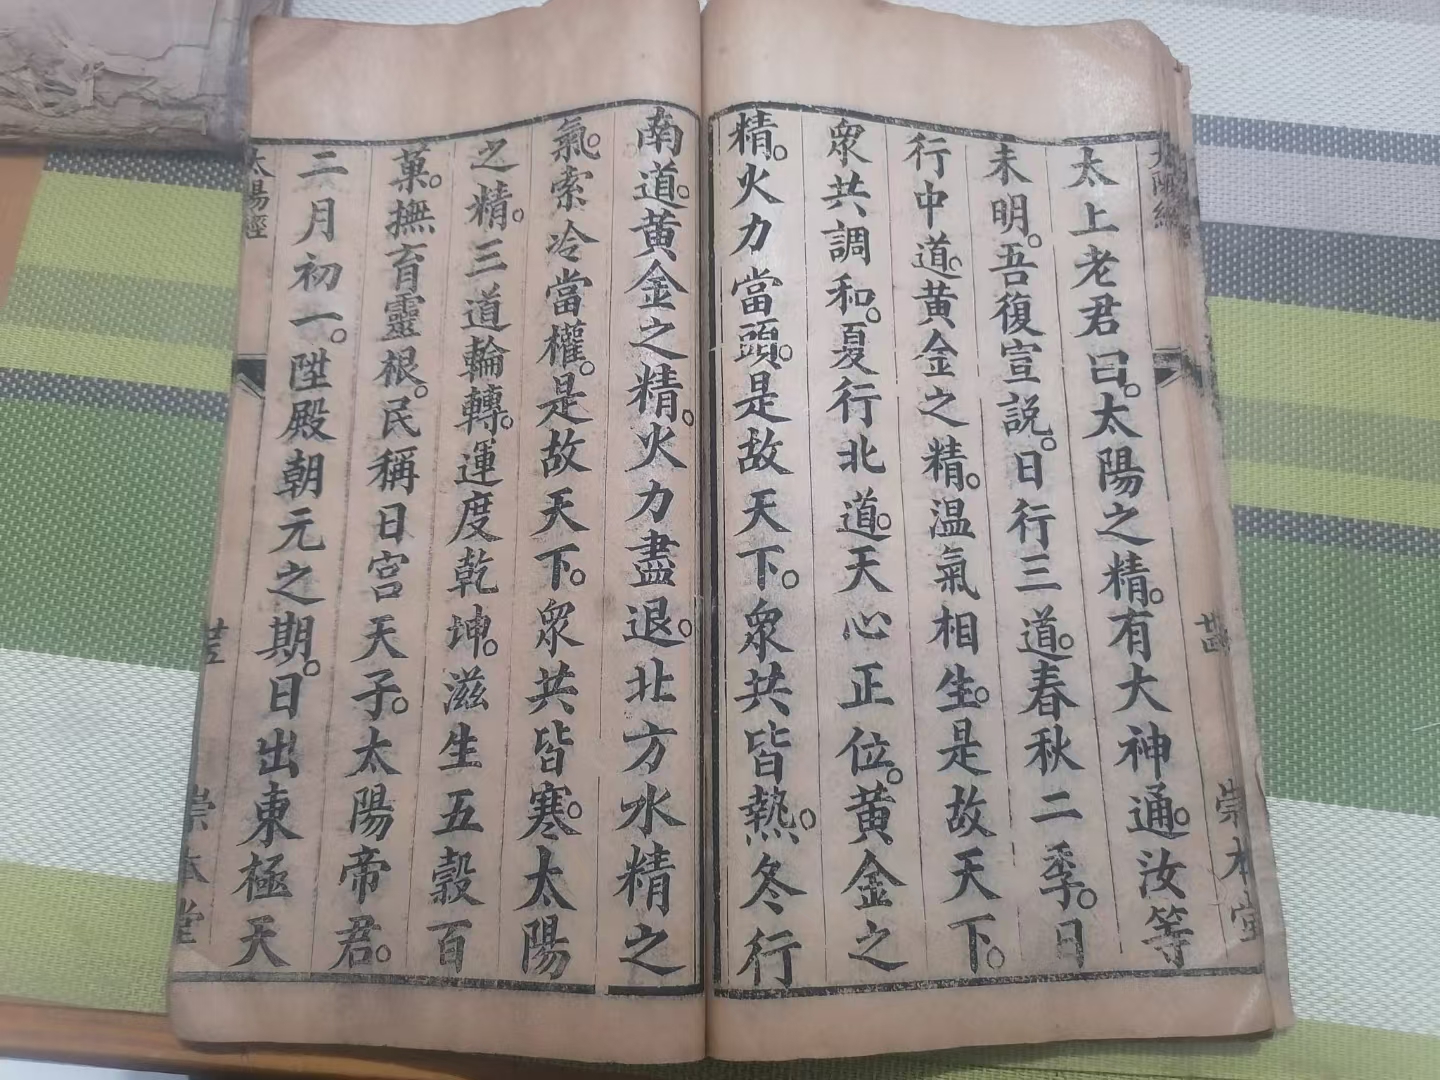 太上老君曰。太陽之精。有大神通。汝等
未明。吾復宣説。日行三道。春秋二季。日
行中道。黃金之精。温氣相生。是故天下。
衆共調和。夏行北道。天心正位。黃金之
精。火力當頭。是故天下。衆共皆熱。冬行
南道。黃金之精。火力盡退。北方水精之
氣。索冷當權。是故天下。衆共皆寒。太陽
之精。三道輪轉。運度乾坤。滋生五穀百
菓。撫育靈根。民稱日宮天子。太陽帝君。
二月初一。陞殿朝元之期。日出東極天
太陽經
崇本堂